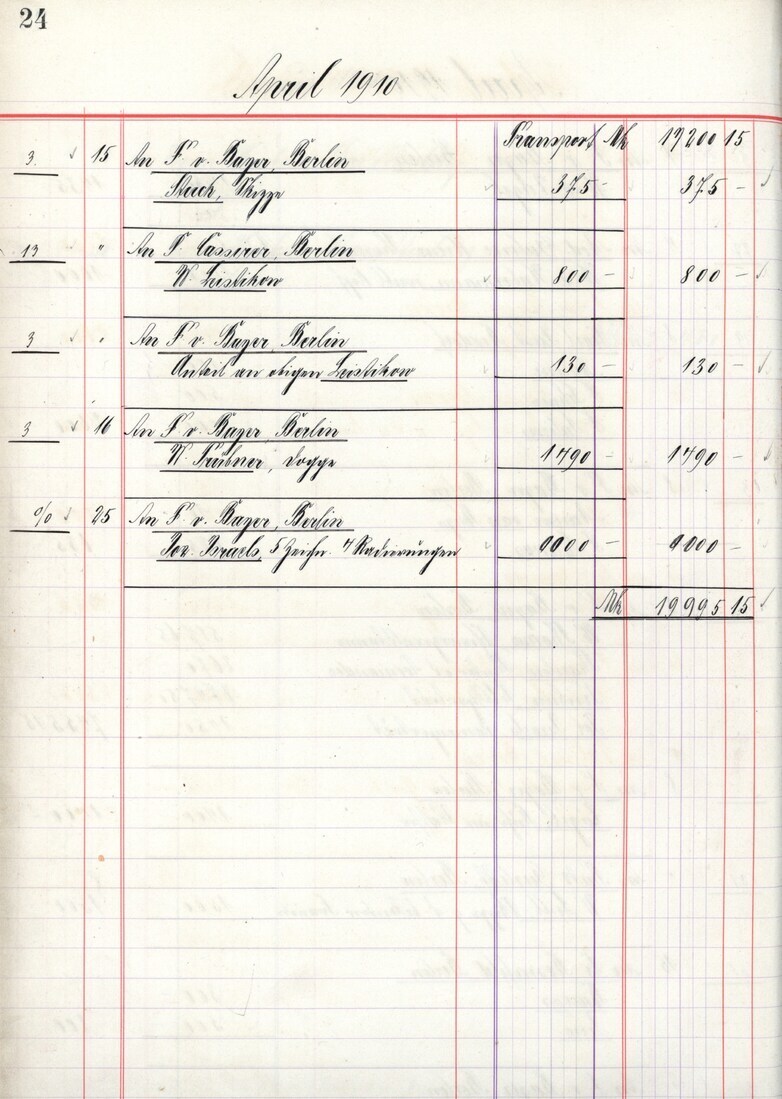 24
April 1910
Transport Mk 16200 15
3. 15 An F. v. Bayer, Berlin
Stuck, Skizze 375 – 375 –
13 " An P. Cassirer, Berlin
W. Leistikow 800 – 800 –
3 " An F. v. Bayer, Berlin
Anteil an obigen Leistikow 130 – 130 –
3 16 An F. v. Bayer, Berlin
W. Trübner, Dogge 1490 – 1490 –
% 25 An F. v. Bayer, Berlin
Jos. Israels, 5 Zeichn. 4 Radierungen 1000 – 1000 –
Mk 19995 15